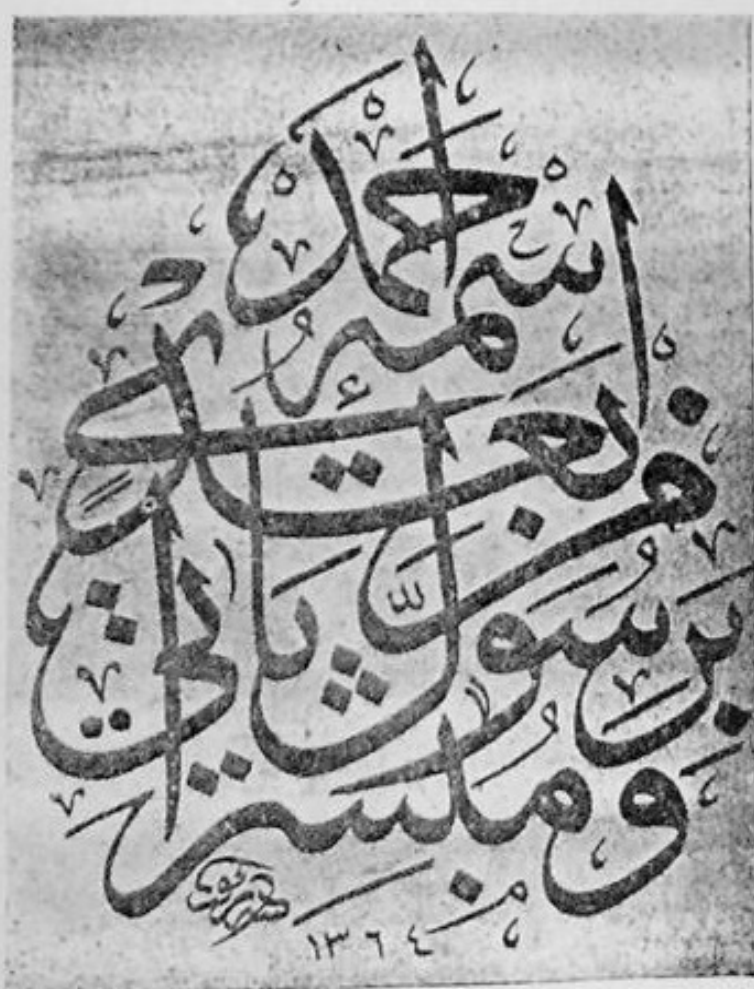 ومبشرًا
برسول يأتي
من بعدي
اسمه أحمد
١٣٦٤